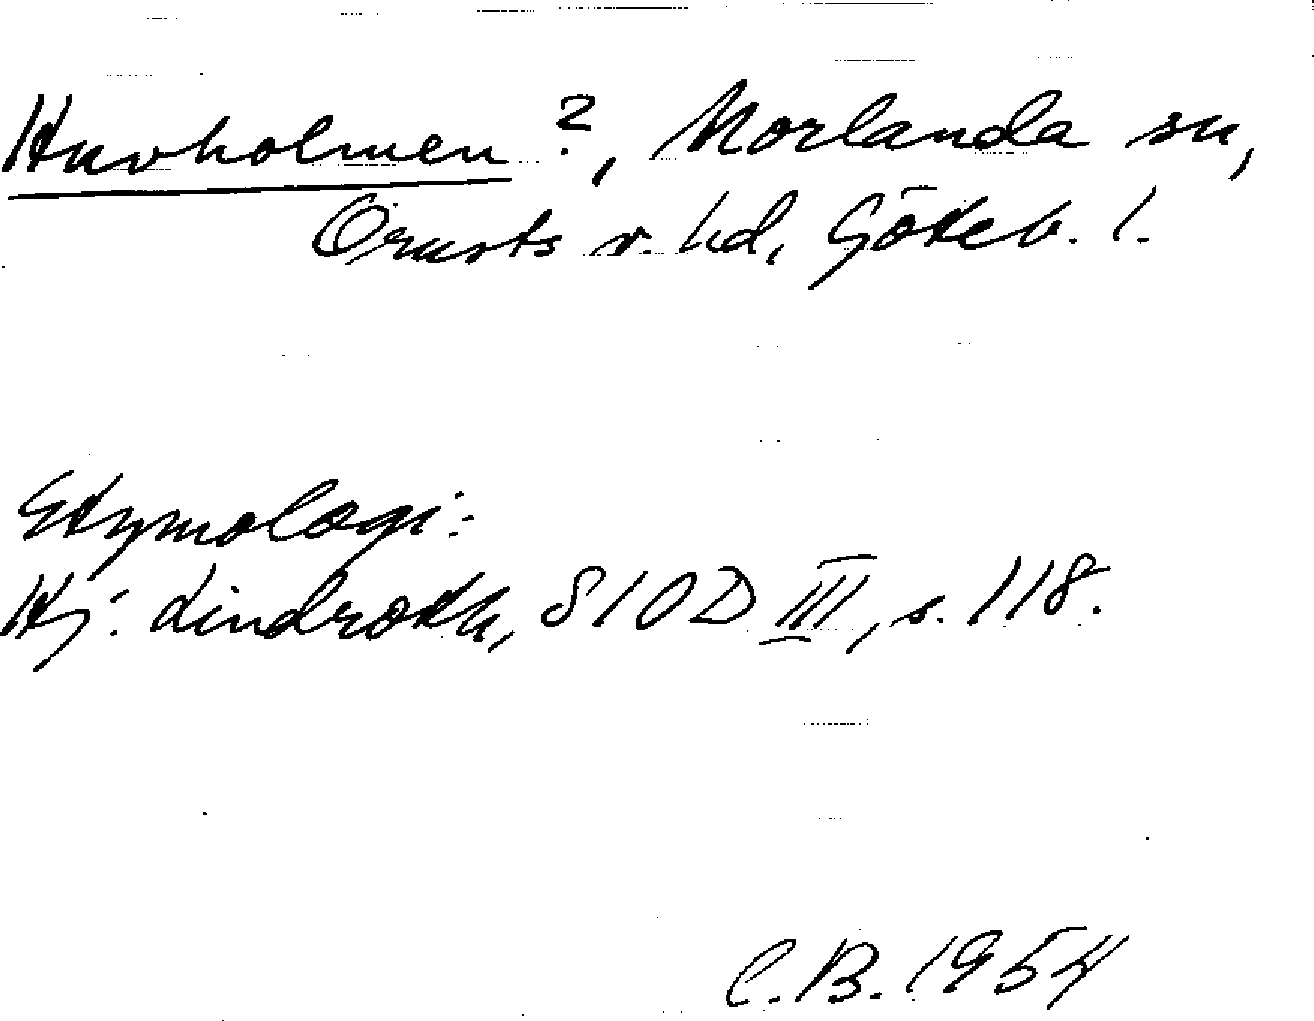 Huvholmen ?, Morlanda sn,
Orusts v. hd, Göteb. l.
Etymologi:
Hj. Lindroth, SIOD III, s. 118.
C.B. 1954